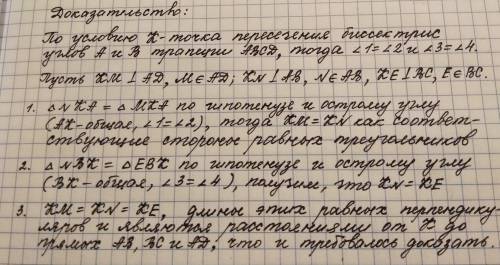 Доказательство:
По условию K-точка пересечения биссектрис
углов A и B трапеции ABCD, тогда ∠1=∠2 и ∠3=∠4.
Пусть KM⊥AD, M∈AD; KN⊥AB, N∈AB, KE⊥BC, E∈BC.
1. △NKA=△MKA по гипотенузе и острому углу
(AK-общая, ∠1=∠2), тогда KM=KN как соответ-
ствующие стороны равных треугольников
2. △NBK=△EBK по гипотенузе и острому углу
(BK-общая, ∠3=∠4), получим, что KN=KE
3. KM=KN=KE, длины этих равных перпендику-
ляров и являются расстояниями от K до
прямых AB, BC и AD, что и требовалось доказать.